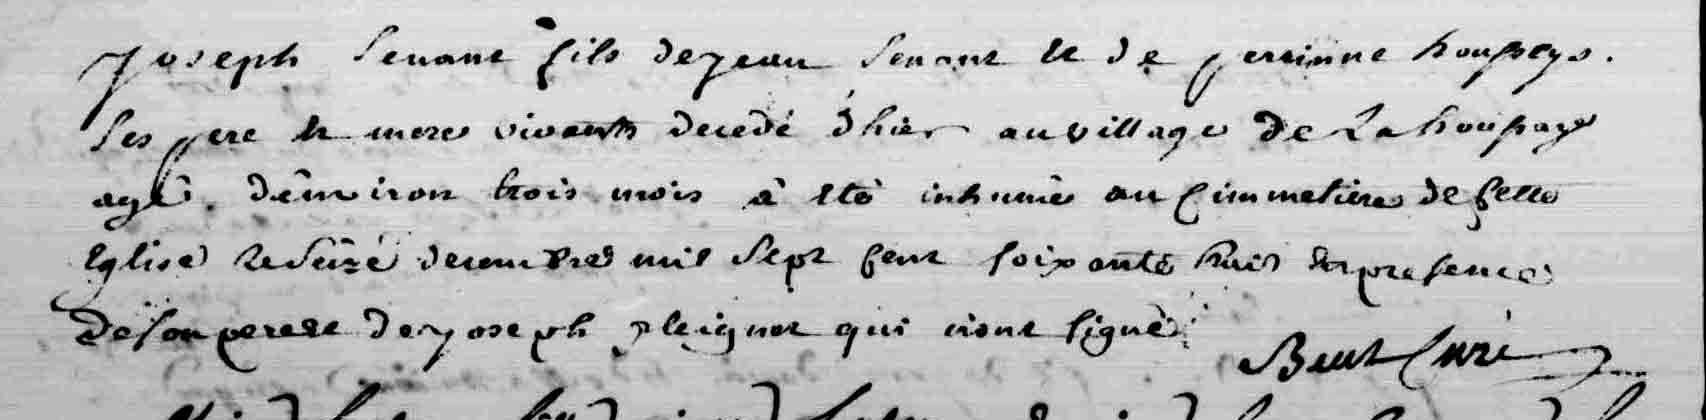 Joseph Senant fils de Jean Senant et de perrinne houpeys.
Ses pere et mere vivants decedé d'hier au village de La houpaye
agé d'environ trois mois à eté inhumé au Cimmetiere de Cette
Eglise le Seize decembre mil Sept Cent Soixante huit en presence
de Son pere et de Joseph pleignet qui n'ont Signé
Beut Curé